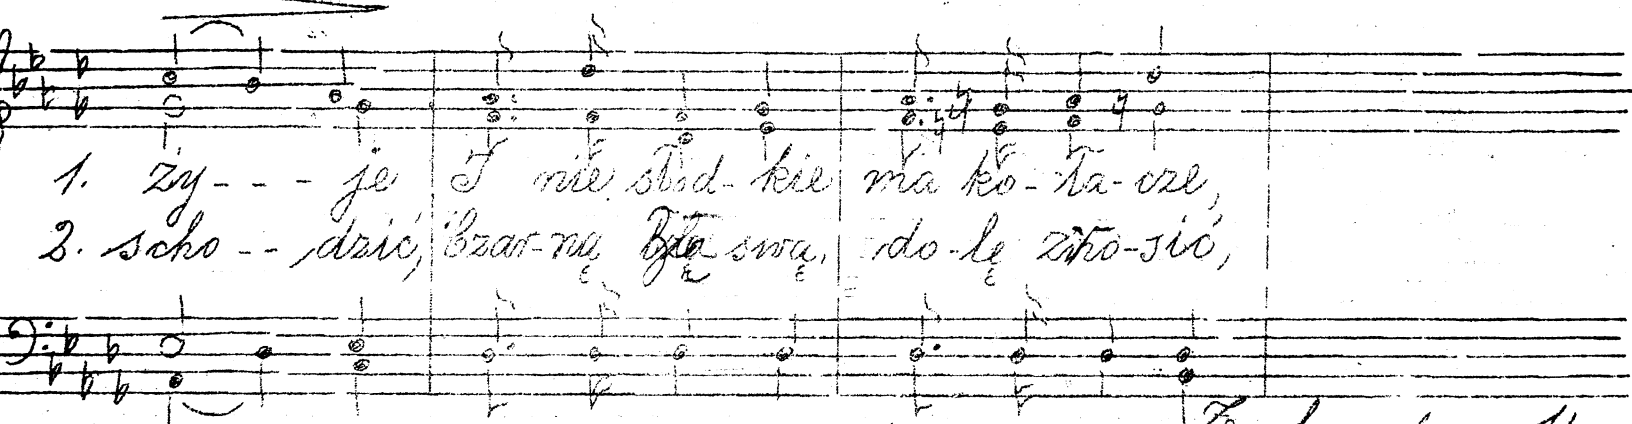 1. ży - - - je I nie słod-kie ma ko-ła-cze,
2. scho - - dzić, Czar-ną swą, do-lę zno-sić,